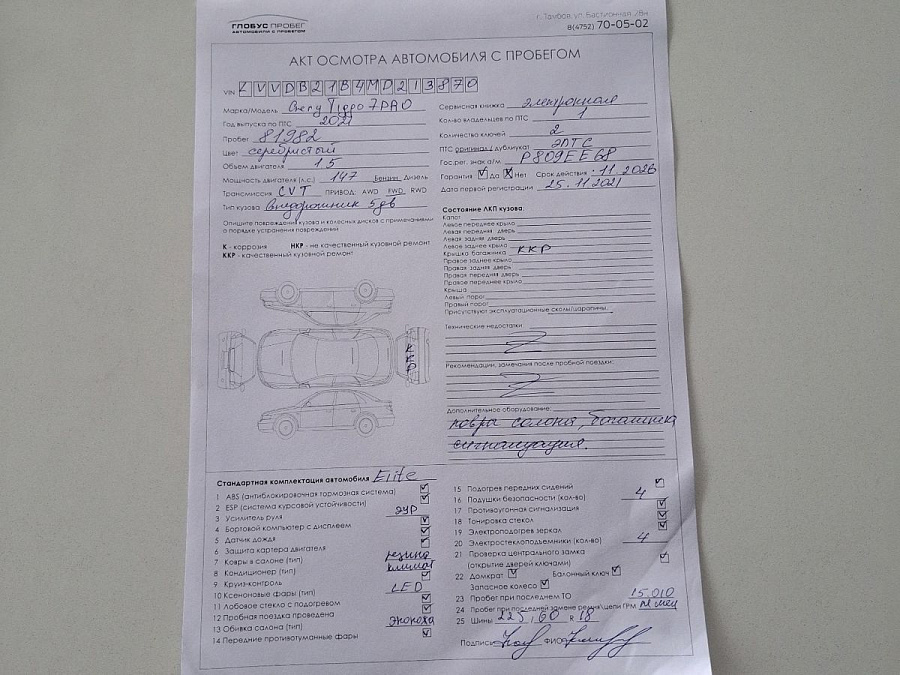 ГЛОБУС ПРОБЕГ
АВТОМОБИЛИ С ПРОБЕГОМ
г. Тамбов ул. Бастионная 28н
8(4752) 70-05-02
АКТ ОСМОТРА АВТОМОБИЛЯ С ПРОБЕГОМ
VIN LVVDB21B4MD213870
Марка/Модель Chery Tiggo 7 PRO
Год выпуска по ПТС 2021
Пробег 81982
Цвет серебристый
Объем двигателя 1.5
Мощность двигателя (л.с.) 147 Бензин Дизель
Трансмиссия CVT ПРИВОД: AWD FWD RWD
Тип кузова Внедорожник 5 дв
Опишите повреждения кузова и колесных дисков с примечаниями
о порядке устранения повреждений
К - коррозия НКР - не качественный кузовной ремонт
ККР - качественный кузовной ремонт
ККР
Сервисная книжка электронная
Кол-во владельцев по ПТС 1
Количество ключей 2
ПТС оригинал / дубликат ЭПТС
Гос.рег. знак а/м Р809ЕЕ68
Гарантия Да Нет Срок действия 11.2026
Дата первой регистрации 25.11.2021
Состояние ЛКП кузова:
Капот
Левое переднее крыло
Левая передняя дверь
Левая задняя дверь
Левое заднее крыло
Крышка багажника ККР
Правое заднее крыло
Правая задняя дверь
Правая передняя дверь
Правое переднее крыло
Крыша
Левый порог
Правый порог
Присутствуют эксплуатационные сколы/царапины.
Технические недостатки
Рекомендации, замечания после пробной поездки:
Дополнительное оборудование:
ковры салона, багажника
сигнализация.
Стандартная комплектация автомобиля Elite
1 ABS (антиблокировочная тормозная система)
2 ESP (система курсовой устойчивости)
3 Усилитель руля ЭУР
4 Бортовой компьютер с дисплеем
5 Датчик дождя
6 Защита картера двигателя
7 Ковры в салоне (тип) резина
8 Кондиционер (тип) климат
9 Круиз-контроль
10 Ксеноновые фары (тип) LED
11 Лобовое стекло с подогревом
12 Пробная поездка проведена
13 Обивка салона (тип) Экокожа
14 Передние противотуманные фары
15 Подогрев передних сидений
16 Подушки безопасности (кол-во) 4
17 Противоугонная сигнализация
18 Тонировка стекол
19 Электроподогрев зеркал
20 Электростеклоподъемники (кол-во) 4
21 Проверка центрального замка
(открытие дверей ключами)
22 Домкрат Балонный ключ
Запасное колесо
23 Пробег при последнем ТО 15.010
24 Пробег при последней замене ремня/цепи ГРМ
25 Шины 225 / 60 R 18
Подпись ФИО